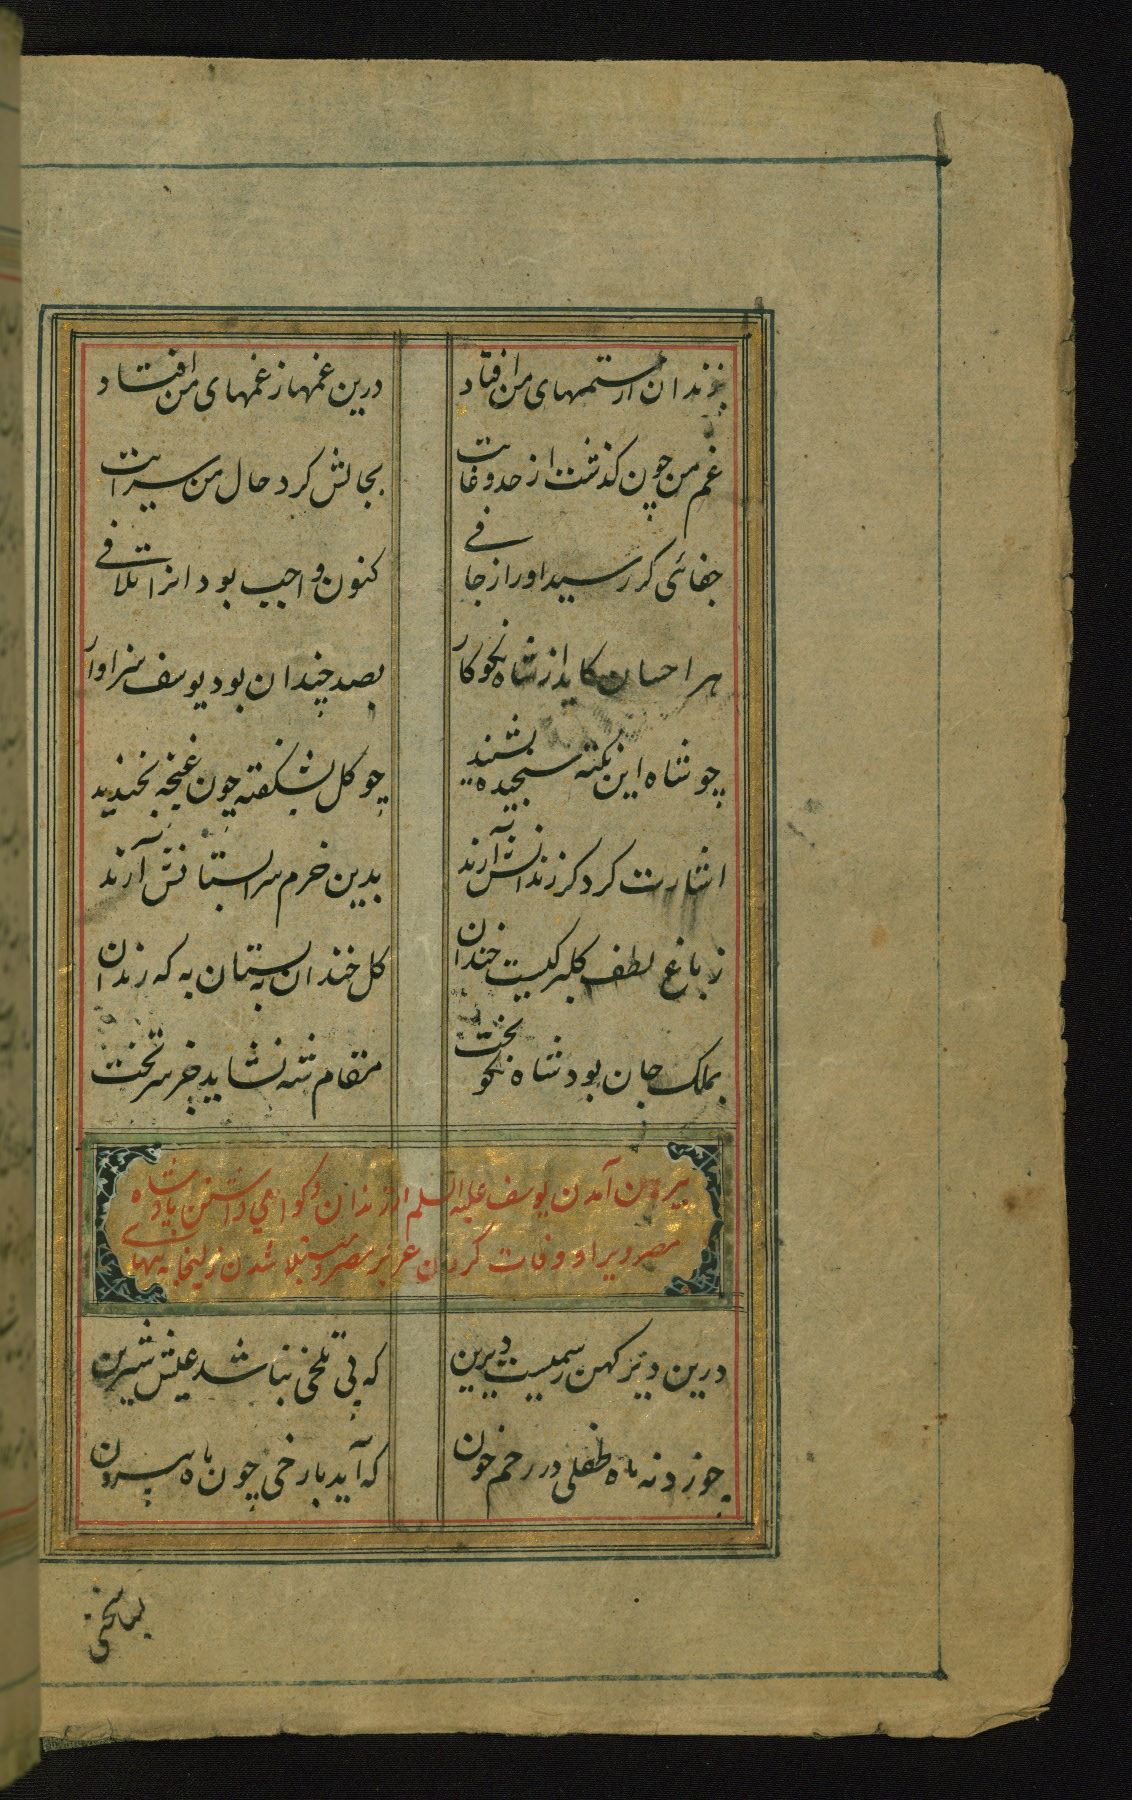 بزندان از ستمهای من افتاد درین غمها ز غمهای من افتاد
غم من چون کذشت از حد و غایت بحالش کرد حال من سرایت
جفائی کر رسید او را ز جافی کنون واجب بود انرا تلافی
هر احسان کاید از شاه نکو کار بصد چندان بود یوسف سزاوار
چو شاه این نکته سنجیده بشنید چو کل بشکفته چون غنچه بخندید
اشارت کرد کز زندانش آرند بدین خرم سرابستانش آرند
ز باغ لطف کلبرکیست خندان کل خندان به بستان به که زندان
بملک جان بود شاه نکو بخت مقام شه نشاید جز سر تخت
بیرون آمدن یوسف علیه السلم از زندان و کرامی داشتن پادشاه
مصر ویرا و وفات کردن عزیز مصر و مبتلا شدن زلیخا به تنهای
درین دیر کهن رسمیست دیرین که بی تلخی نباشد عیش شیرین
خورد نه ماه طفلی در رحم خون که آید با رخی چون ماه بیرون
بسا سختی